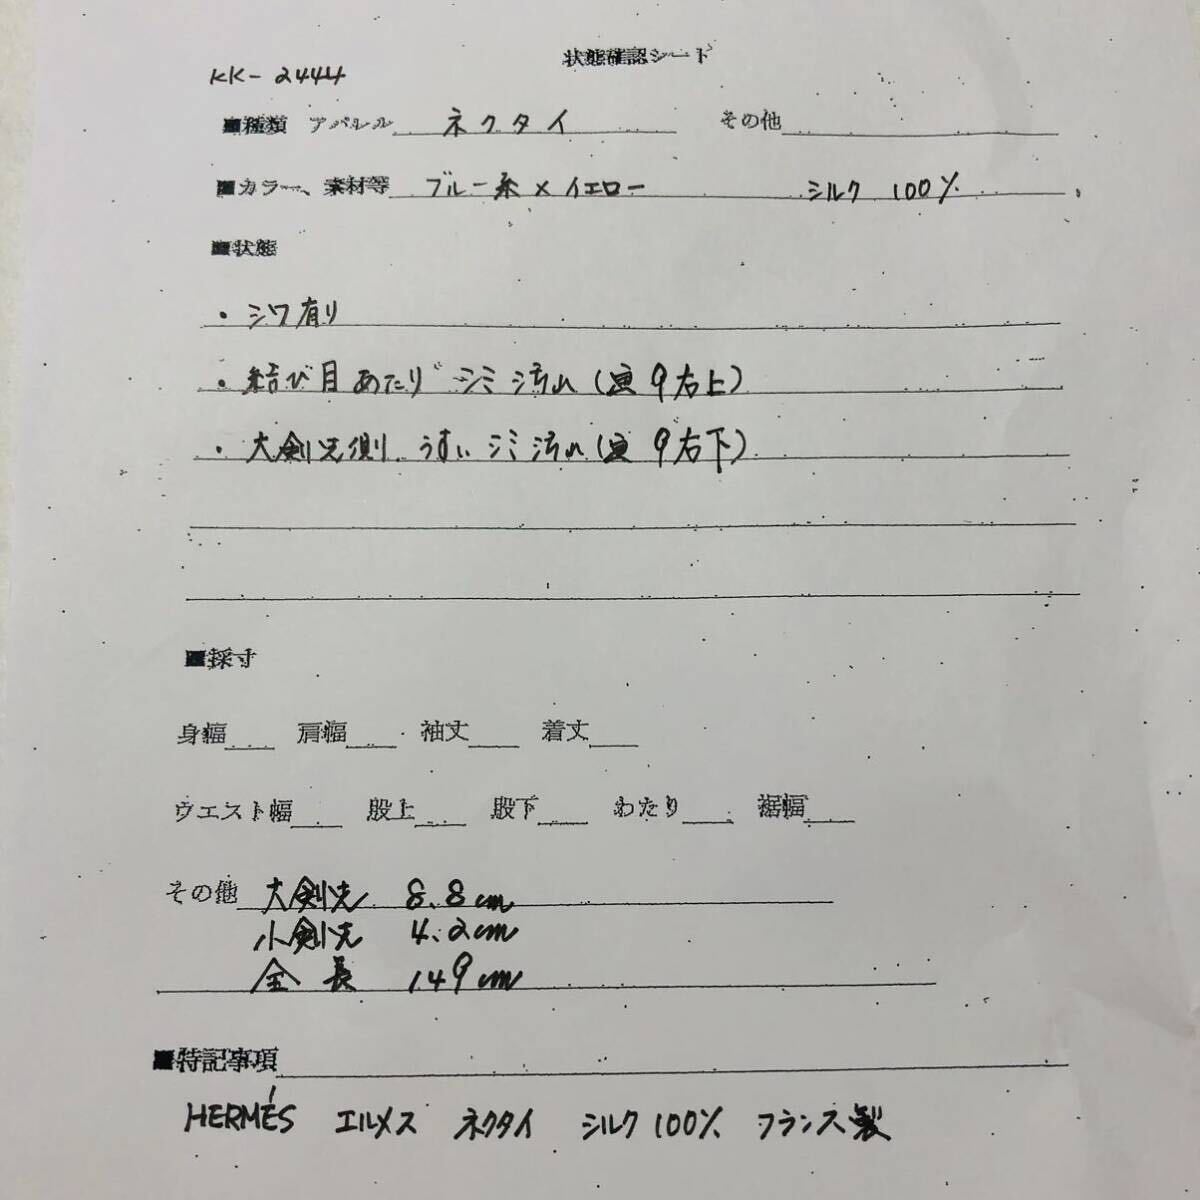 状態確認シート
KK-2444
■種類 アパレル ネクタイ その他
■カラー、素材等 ブルー系×イエロー シルク 100%
■状態
・シワ有り
・結び目あたり シミ汚れ(画9右上)
・大剣先側、うすいシミ汚れ(画9右下)
■採寸
身幅 肩幅 袖丈 着丈
ウエスト幅 股上 股下 わたり 裾幅
その他 大剣先 8.8cm
小剣先 4.2cm
全長 149cm
■特記事項
HERMÉS エルメス ネクタイ シルク100% フランス製